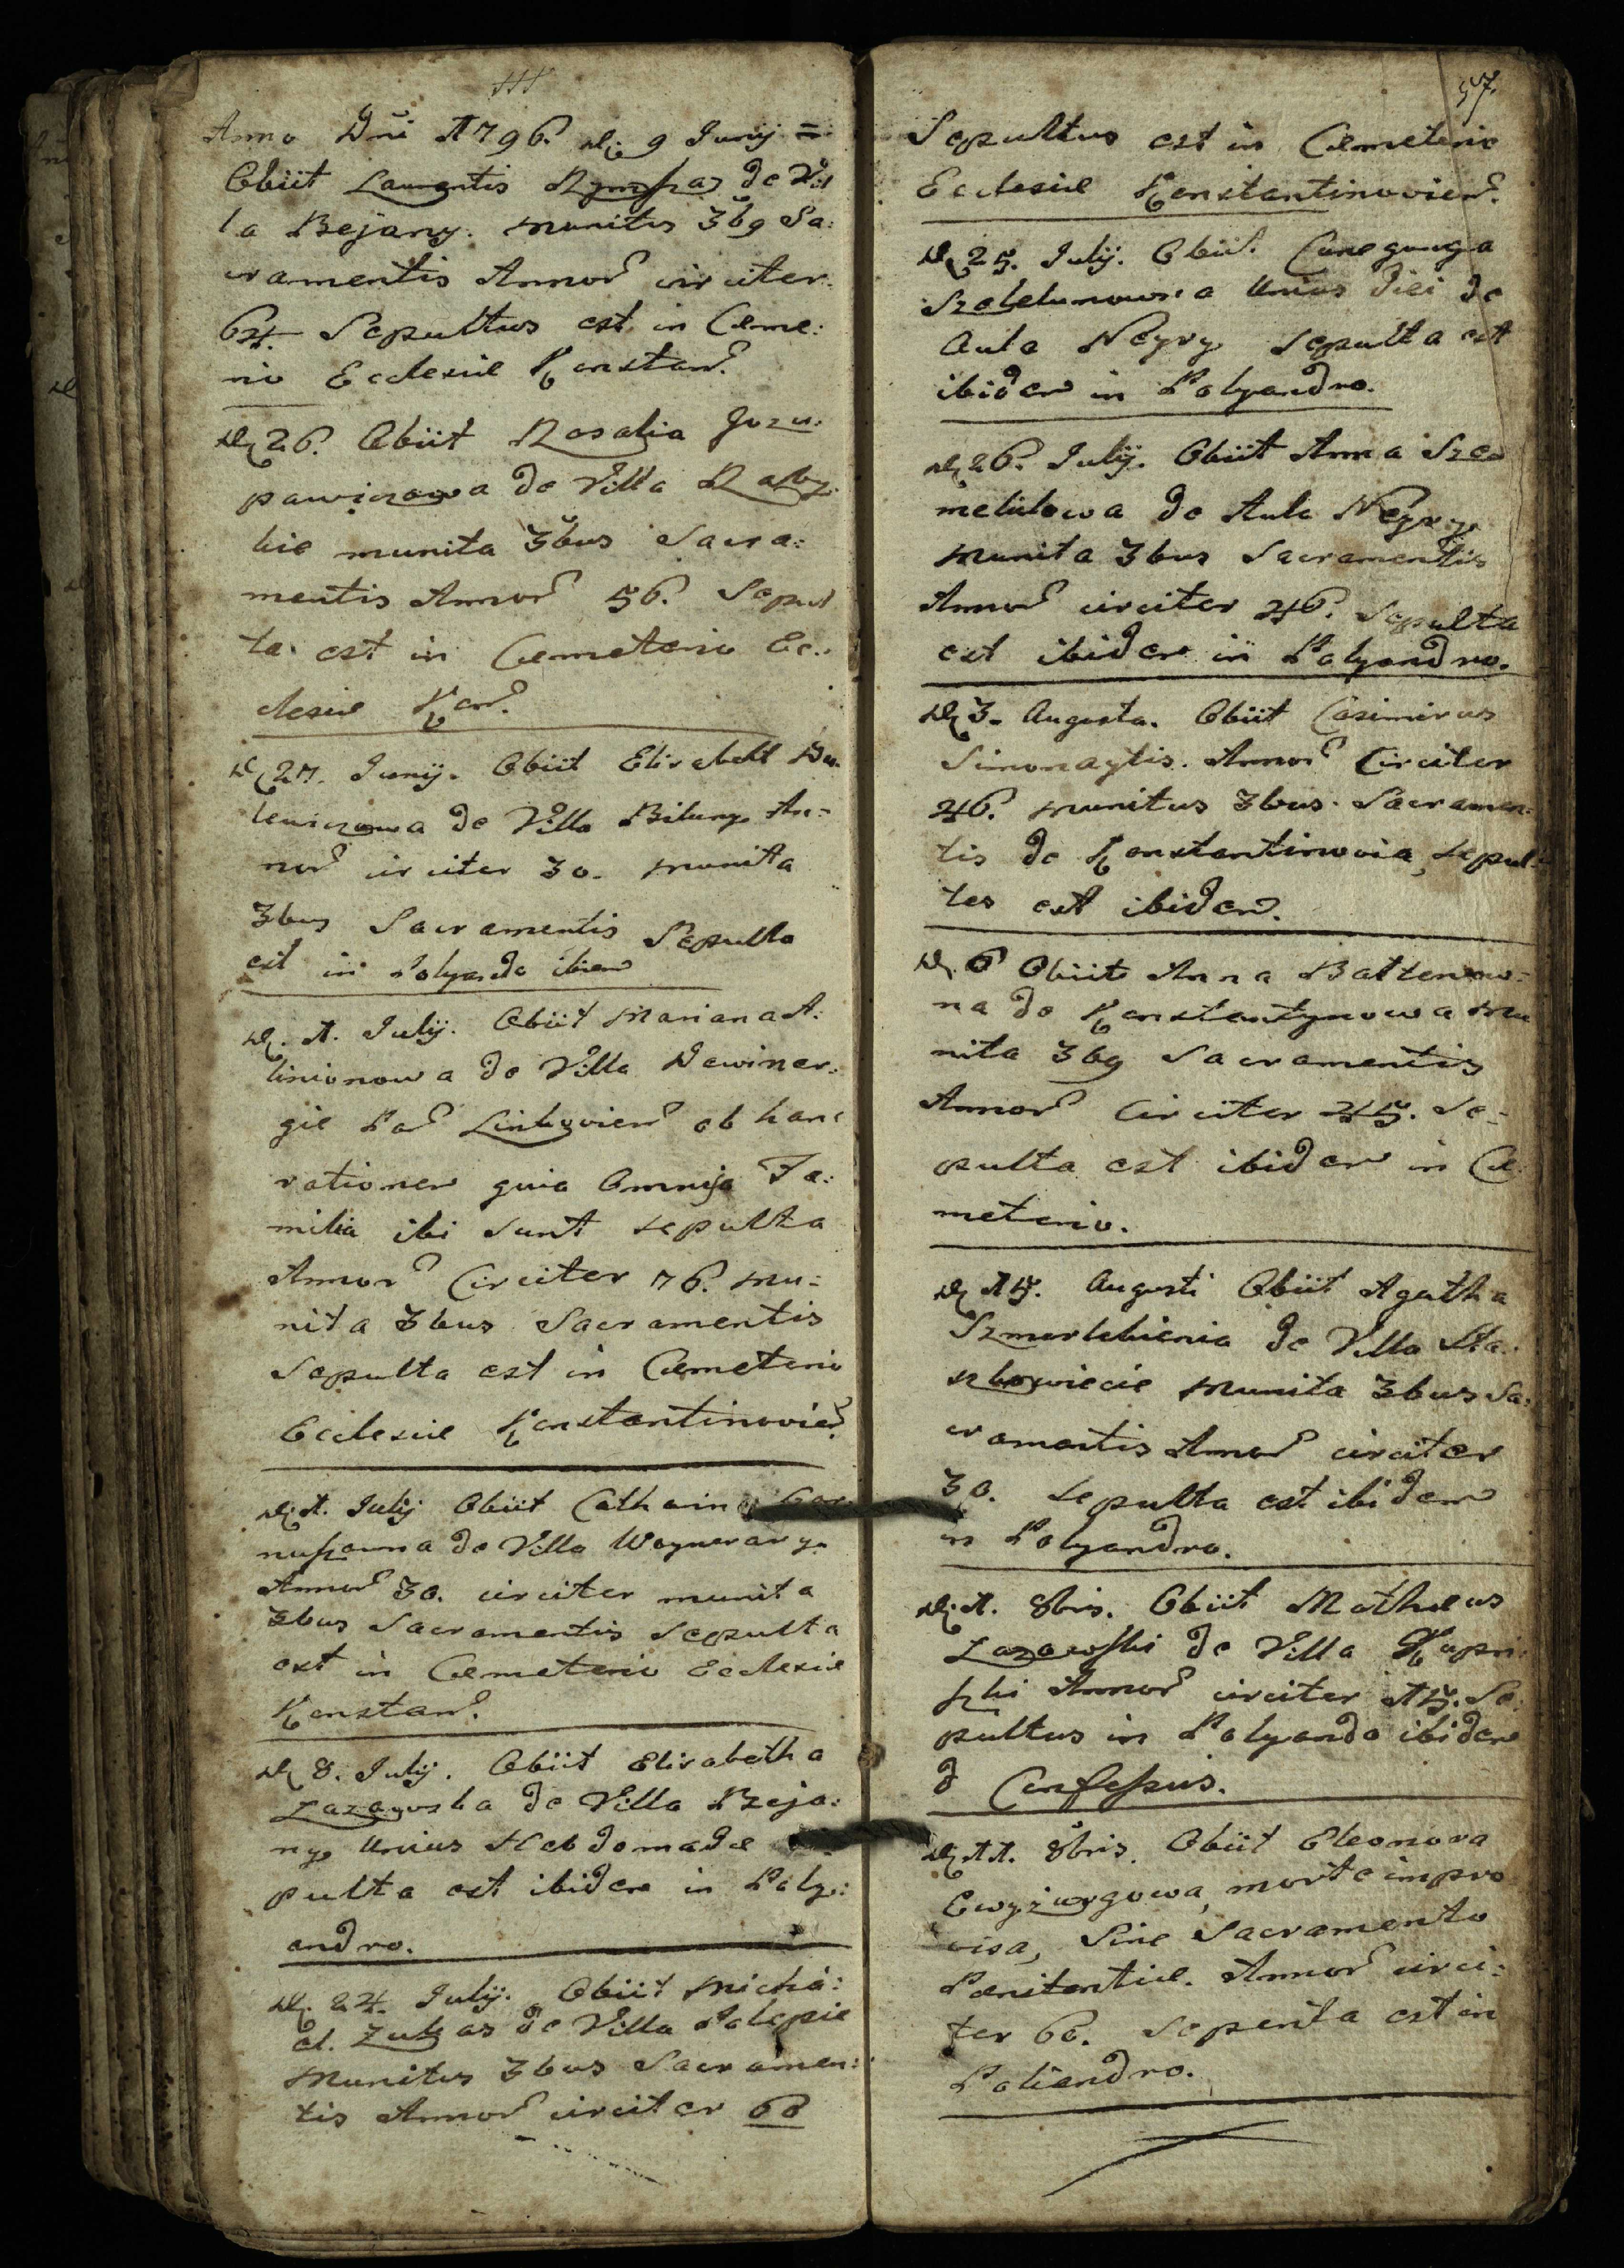 Anno Dni 1796. D. 9 Junij =
Obiit Laurentis de Vil
la Bejany. munitus 3bg Sa:
cramentis Annor circiter
64. Sepultus est in Ceme:
rio Ecclesiæ Konstan.
D 26. Obiit Rosalia Jozu:
pawiczowa de Villa
munita 3bus Sacra:
mentis Annor 56. Sepul
ta est in Cemeterio Ec:
clesiæ Kon.
D 27. Junij. Obiit Elisabeht
lewiczowa de Villa Biluny An=
nor circiter 30. munita
3bus Sacramentis Sepulta
est in Polyando
D. 1. Julij. Obiit Mariana A:
de Villa Dewiner:
giæ Par Linkovien ob hanc
rationem quia Omnija Fa:
milia ibi sunt sepulta
Annor Circiter 76. mu=
nita 3bus Sacramentis
Sepulta est in Cemeterio
Ecclesiæ Konstantinovien
D. 1. Julij Obiit
de Villa Woynorary.
Annor 30. circiter munita
3bus Sacramentis Sepulta
est in Cemeterio Ecclesiæ
Konstan.
D 8. Julij. Obiit Elisabetha
Lazowska de Villa Bejo:
ny. Unius Hebdomadæ
pulta est ibidem in Poly:
andro.
D. 24. Julij. Obiit Micha:
el. Zukas de Villa Polepie
Munitus 3bus Sacramen:
tis Annor circiter 60
57.
Sepultus est in Cemeterio
Ecclesiæ Konstantinovien.
D 25. Julij. Obiit. Cunegunga
Unius diei de
Aula Neyry sepulta est
ibidem in Polyandro.
D 26. Julij. Obiit Anna Sze=
melulowa de Aula Neyry.
munita 3bus Sacramentis
Annor circiter 46. Sepulta
est ibidem in Polyandro.
D 3. Augusta. Obiit Casimirus
Simonaytis. Annor Circiter
46. munitus 3bus. Sacramen:
tis de Konstantinovia, sepul=
tes est ibidem.
D. 6 Obiit Anna
na de Konstantynowa mu
nita 3bg Sacramentis
Annor Circiter 45. Se=
pulta est ibidem in Cæ:
meterio.
D 15. Augusti Obiit Agatha
de Villa Sta:
munita 3bus Sa:
cramentis Annor circiter
30. Sepulta est ibidem
in Polyandro.
D. 1. 8bris. Obiit Mathæus
Lazowski de Villa Kupri
szki Annor circiter 15. Se:
pultus in Polyando ibidem
Confessus.
D 11. 8bris. Obiit Eleonora
morte impro
visa, Sine Sacramento
Pænitentiæ. Annor circi:
ter 60. Sepenta est in
Poliendro.